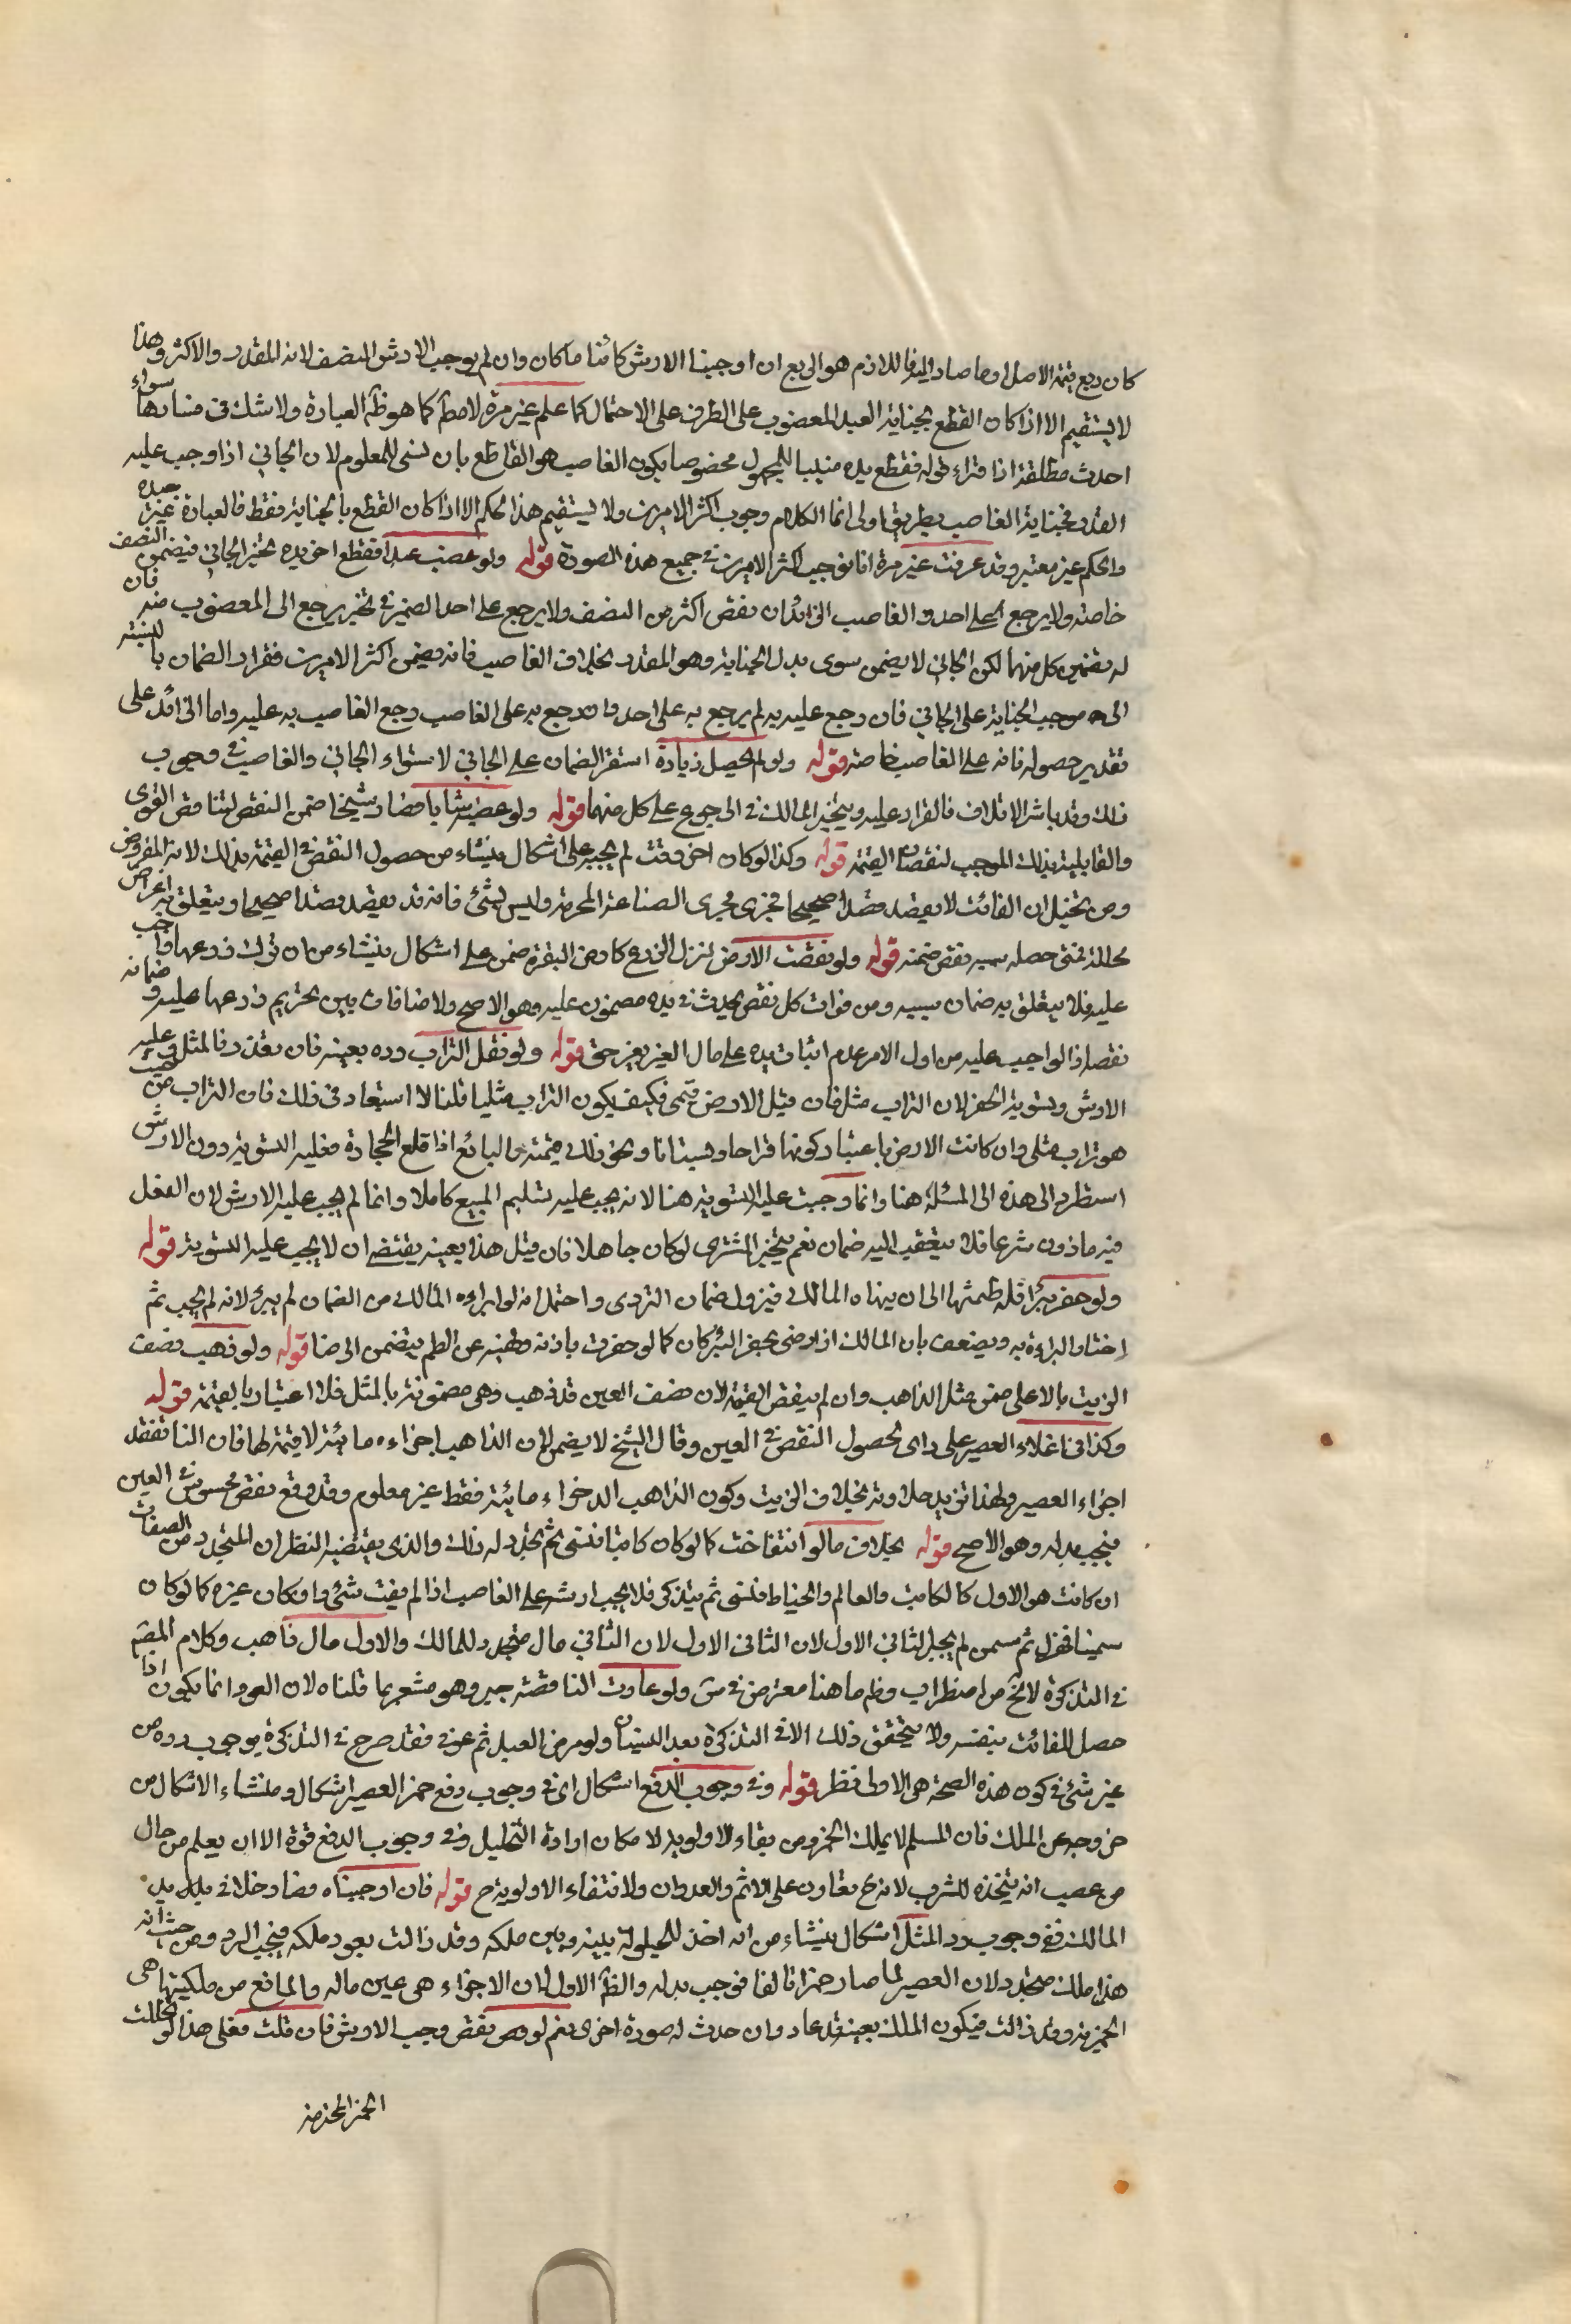 كان ربع قيمة الاصل او ما صار اليه فاللازم هو الربع ان اوجبنا الارش كائنا ما كان وان لم يوجب الارش النصف لانه المقدر والاكثر وهذا
لا يستقيم الا اذا كان القطع بجناية العبد المغصوب على الطرف على الاحتمال كما علم غير مرة لا مطم كما هو ظم العبارة ولا شك فى فسادها سواء
احدث مطلقة اذا قراء قوله فقطع يده مبنيا للمجهول مخصوصا بكون الغاصب هو القاطع بان بنى للمعلوم لان الجاني اذا وجب عليه
المقدر فجناية الغاصب بطريق اولى انما الكلام وجوب اكثر الامرين ولا يستقيم هذا الحكم الا اذا كان القطع بالجناية فقط فالعبارة غير جيده
والحكم غير معتبر وقد عرفت غير مرة انا نوجب اكثر الامرين فى جميع هذه الصورة قوله ولو غصب عبدا فقطع اخر يده تخير الجاني فيضمن النصف
خاصة ولا يرجع على احد والغاصب الزائد ان نقص اكثر من النصف ولا يرجع على احد الضمير فى تخير يرجع الى المغصوب منه فان
له تضمين كل منهما لكن الجاني لا يضمن سوى بدل الجناية وهو المقدر بخلاف الغاصب فانه يضمن اكثر الامرين فقرار الضمان بالنسبة
الى موجب الجناية على الجاني فان رجع عليه به لم يرجع به على احد وان رجع به على الغاصب رجع الغاصب به عليه واما الزائد على
تقدير حصوله فانه على الغاصب خاصة قوله ولو لم يحصل زيادة استقر الضمان على الجاني لاستواء الجاني والغاصب فى وجوب
ذلك وقد باشر الاتلاف فالقرار عليه ويتخير المالك فى الرجوع على كل منهما قوله ولو غصب شابا فصار شيخا ضمن النقص لتناقص القوى
والقابلية بذلك الموجب لنقصان القيمة قوله وكذا لو كان اخر وقت لم يجبه على اشكال ينشاء من حصول النقص فى القيمة بذلك لانه المفروض
ومن تخيل ان الفائت لا يقصد قصدا صحيحا فجرى مجرى الصناعة المحرمة وليس بشئ فانه قد يقصد قصدا صحيحا ويتعلق به اغراض
محللة فمتى حصله بسببه نقص ضمنه قوله ولو نقصت الارض لترك الزرع كارض البقرة ضمن على اشكال ينشاء من ان ترك زرعها واجب
عليه فلا يتعلق به ضمان بسببه ومن فوات كل نقص يحدث فى يده مضمون عليه وهو الاصح ولا منافات بين تحريم زرعها عليه وضمانه
نقصها اذ الواجب عليه من اول الامر عدم اثبات يده على مال الغير بغير حق قوله ولو نقل التراب رده بعينه فان تعذر فالمثل وعليه
الارش وتسوية الحفر لان التراب مثل فان قيل الارض قيمى فكيف يكون التراب مثليا قلنا لا استبعاد فى ذلك فان التراب من حيث
هو تراب مثلى وان كانت الارض باعتبار كونها قراحا وبستانا ونحو ذلك قيمته والبائع اذا قلع الحجارة فعليه التسوية دون الارش
استطرد الى هذه الى المسئلة هنا وانما وجبت عليه التسوية هنا لانه يجب عليه تسليم المبيع كاملا وانما لم يجب عليه الارش لان الفعل
فيه ماذون شرعا فلا يتعقب اليه ضمان نعم يتخير المشترى لو كان جاهلا فان قيل هذا بعينه يقتضى ان لا يجب عليه التسوية قوله
ولو حفر بئرا فله طمثها الى ان ينهاه المالك فيزول ضمان التردى واحتمل انه لو ابراءه المالك من الضمان لم يبرء لانه لم يجب ثم
اختار البراءة به ويضعف بان المالك اذا رضى بحفر البئر كان كما لو حفرت باذنه ونهيه عن الطم يتضمن الرضا قوله ولو ذهب نصف
الزيت بالاغلى ضمن مثل الذاهب وان لم ينقص القيمة لان نصف العين قد ذهب وهى مضمونة بالمثل فلا اعتبار بالقيمة قوله
وكذا فى اغلاء العصير على راى لحصول النقص فى العين وقال الشيخ لا يضمن لان الذاهب اجزاءه مائية لا قيمة لها فان النار تفقد
اجزاء العصير ولهذا تزيد حلاوته بخلاف الزيت وكون الذاهب الاجزاء مائية فقط غير معلوم وقد وقع نقص محسوس فى العين
فيجب بدله وهو الاصح قوله بخلاف ما لو انتفاخت كما لو كان كاتبا فنسى ثم تجدد له ذلك والذى يقتضيه النظر ان المتجدد من الصفات
ان كانت هو الاول كالكاتب والعالم والخياط فنسى ثم يتذكر فلا يجب ارشه على الغاصب اذ لم يفت شئ وان كان غيره كما لو كان
سمينا فهزل ثم سمن لم يجبل الثاني الاول لان الثانى الاول لان الثاني مال متجدد للمالك والاول مال ذاهب وكلام المصم
فى التذكرة لا يخ من اضطراب وظم ما هنا معترض فى س ولو عادت الناقصة جبر وهو مشعر بما قلناه لان العود انما يكون اذا
حصل للفائت بنفسه ولا يتحقق ذلك الا فى التذكرة بعد النسيان ولو مرض العبد ثم عوفى فقد صرح فى التذكرة بوجوب رده من
غير شئ فى كون هذه الصحة هى الاولى نظر قوله وفى وجوب الدفع اشكال اى فى وجوب دفع خمر العصير اشكال ومنشاء الاشكال من
خروجه عن الملك فان المسلم لا يملك الخمر ومن بقاء الاولوية لامكان ارادة التخليل وفى وجوب الدفع قوة الا ان يعلم من حال
من غصب انه يتخذه للشرب لانه ح تعاون على الاثم والعدوان ولانتفاء الاولوية ح قوله فان اوجبناه فصار خلا فى يد
المالك ففى وجوب رد المثل اشكال ينشاء من انه اخذ للحيلولة بينه وبين ملكه وقد زالت بعود ملكه فيجب الرد ومن حيث انه
هذا ملك متجدد لان العصير لما صار خمرا تالفا فوجب بدله والظم الاول لان الاجزاء هى عين ماله والمانع من ملكيتها هى
الخمرية وقد زالت فيكون الملك بعينه قد عاد وان حدث له صورة اخرى نعم لو نقص وجب الارش فان قلت فعلى هذا لو تخللت
الخمر المحترمة